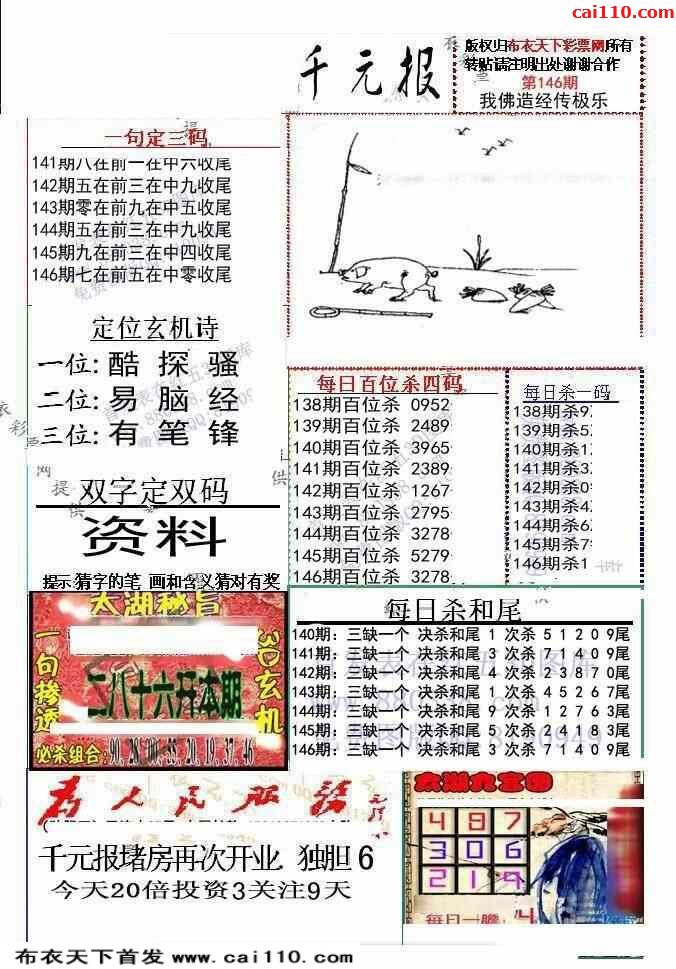 cai110.com
千元报
版权归布衣天下彩票网所有
转贴请注明出处谢谢合作
第146期
我佛造经传极乐
一句定三码
141期八在前一在中六收尾
142期五在前三在中九收尾
143期零在前九在中五收尾
144期五在前三在中九收尾
145期九在前三在中四收尾
146期七在前五在中零收尾
定位玄机诗
一位: 酷 探 骚
二位: 易 脑 经
三位: 有 笔 锋
双字定双码
资料
提示:猜字的笔 画和含义猜对有奖
每日百位杀四码
138期百位杀 0952
139期百位杀 2489
140期百位杀 3965
141期百位杀 2389
142期百位杀 1267
143期百位杀 2795
144期百位杀 3278
145期百位杀 5279
146期百位杀 3278
每日杀一码
138期杀9
139期杀5
140期杀1
141期杀3
142期杀0
143期杀4
144期杀6
145期杀7
146期杀1
太湖秘旨
一句掺透
3D玄机
二八十六开本期
必杀组合: 90.28.00.55.20.19.37.46
每日杀和尾
140期: 三缺一个 决杀和尾 1 次杀 5 1 2 0 9尾
141期: 三缺一个 决杀和尾 3 次杀 7 1 4 0 9尾
142期: 三缺一个 决杀和尾 4 次杀 2 3 8 7 0尾
143期: 三缺一个 决杀和尾 1 次杀 4 5 2 6 7尾
144期: 三缺一个 决杀和尾 9 次杀 1 2 7 6 3尾
145期: 三缺一个 决杀和尾 5 次杀 2 4 1 8 3尾
146期: 三缺一个 决杀和尾 3 次杀 7 1 4 0 9尾
为人民服务
千元报堵房再次开业. 独胆 6
今天20倍投资3关注9天
太湖九宫图
4 8 7
3 0 6
2 1 9
每日一胆: 4
布衣天下首发 www.cai110.com